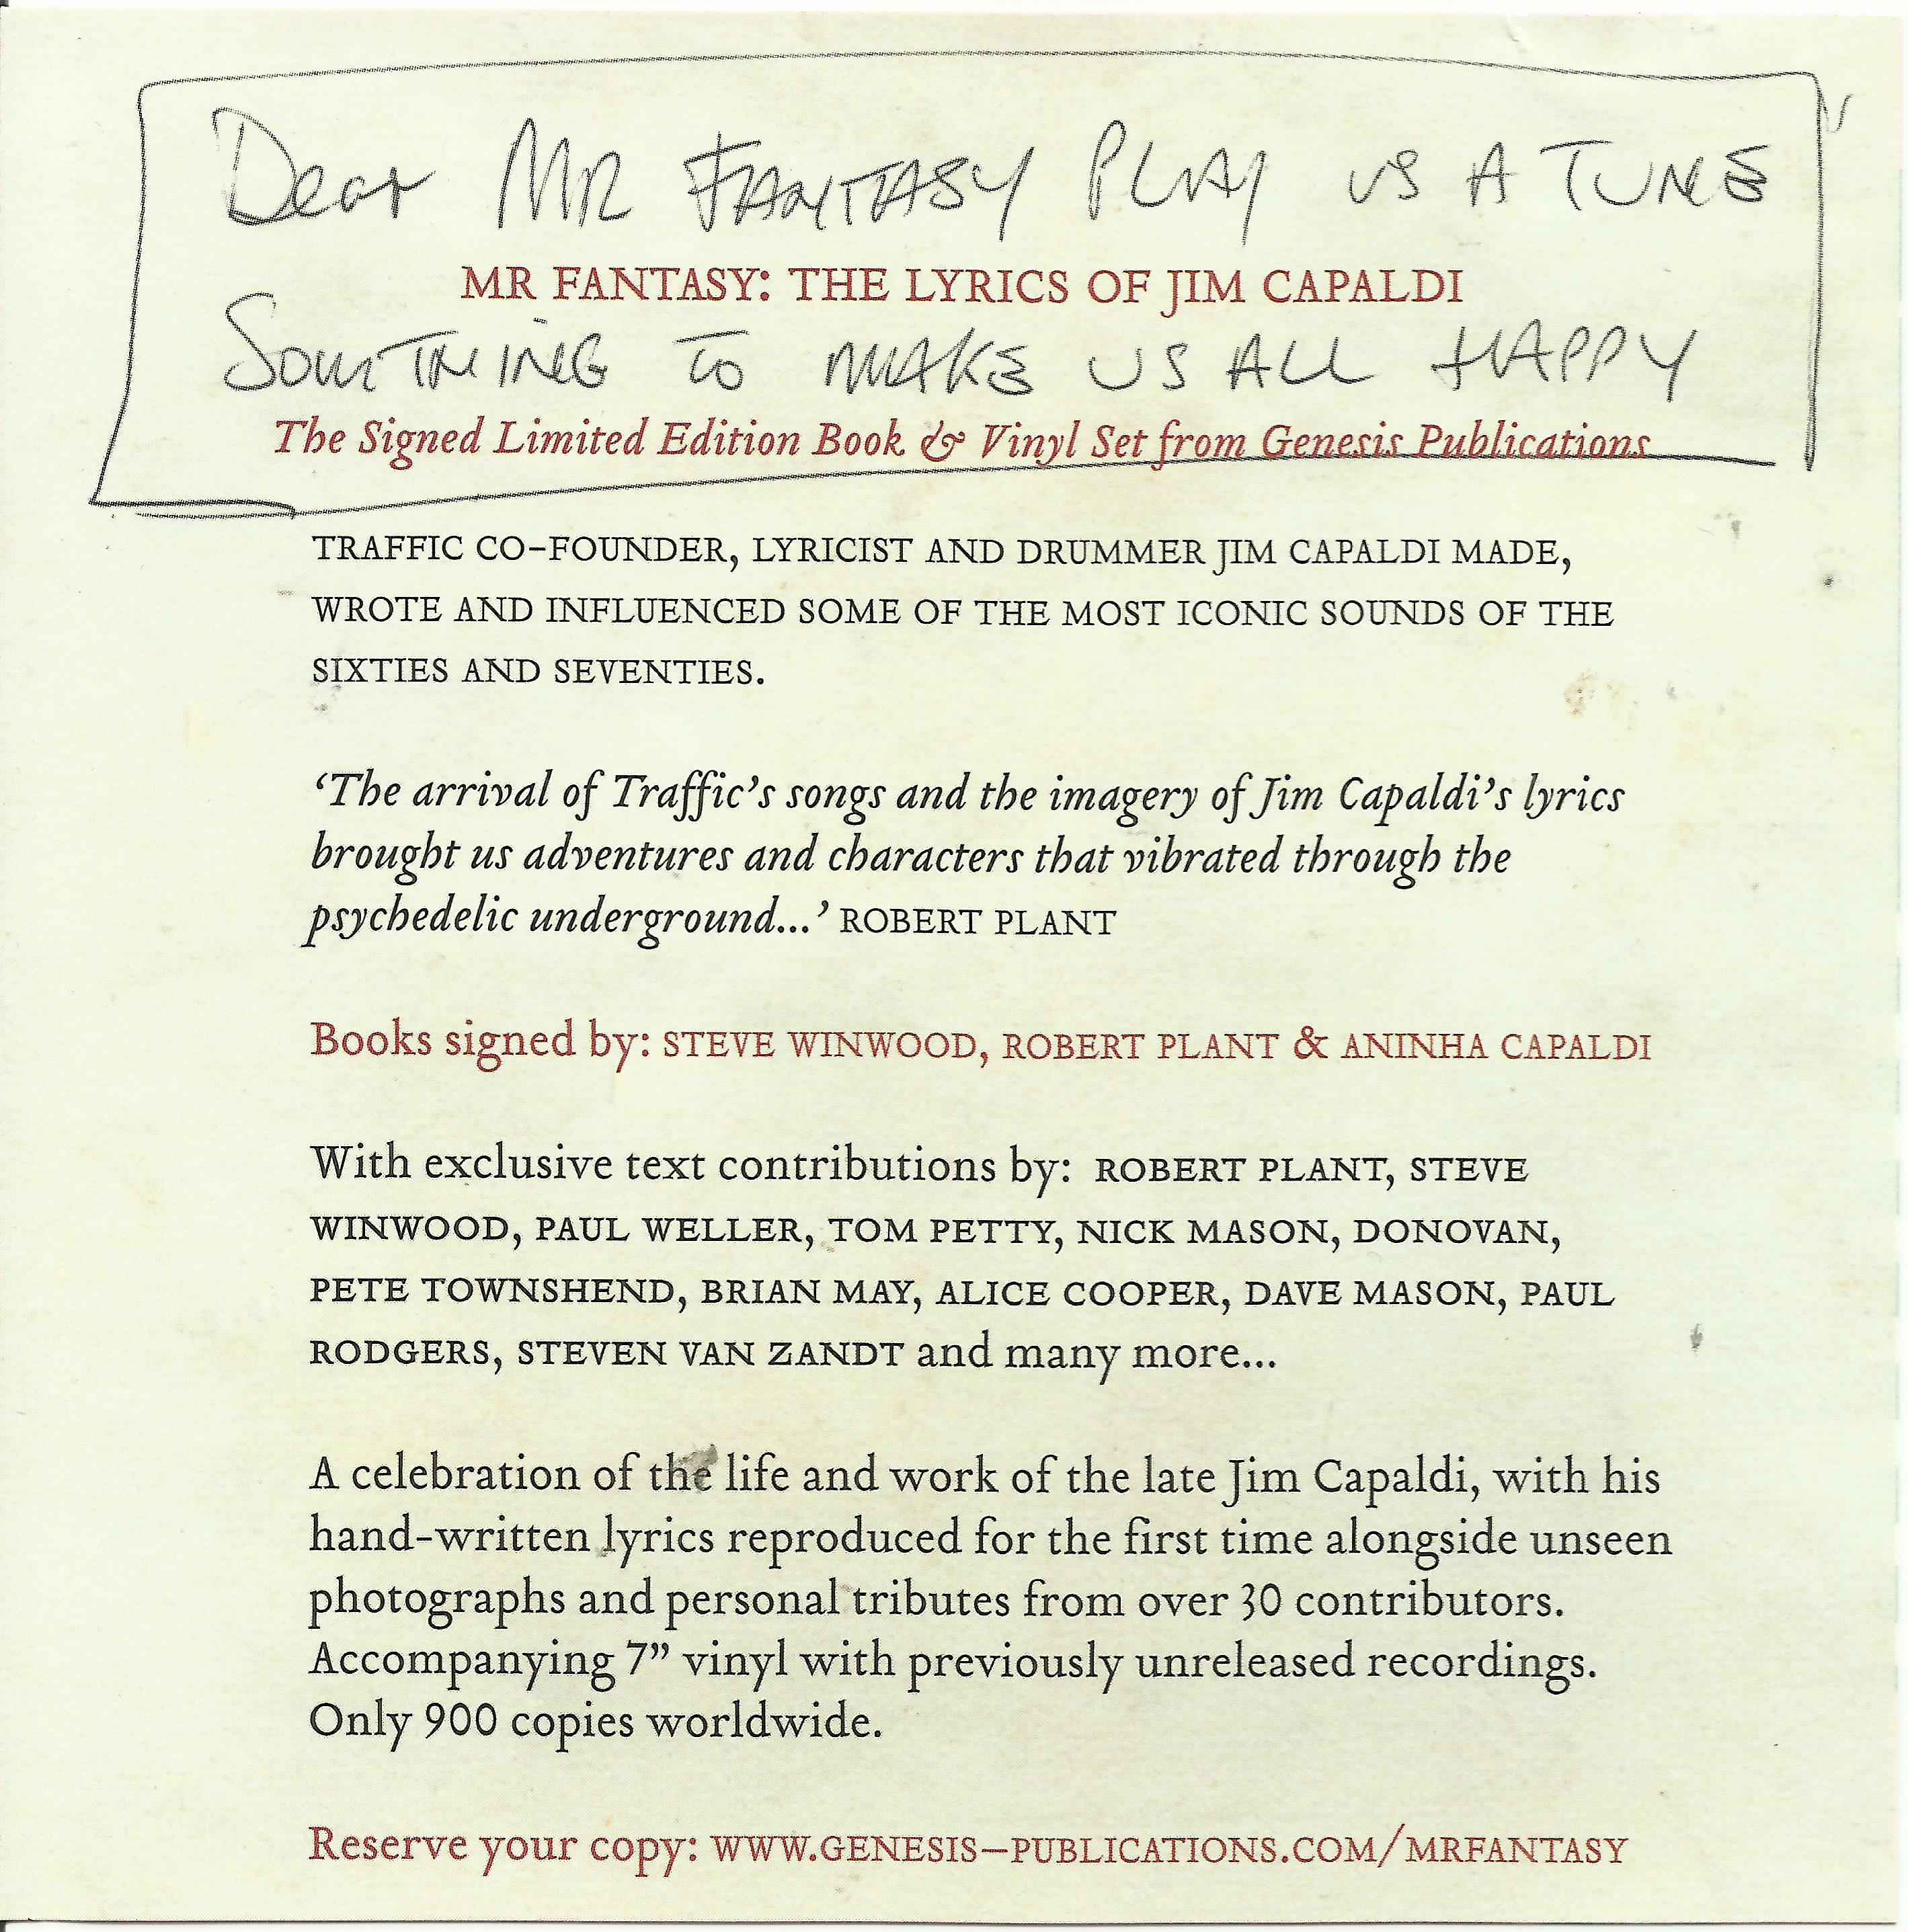 Dear MR FANTASY PLAY US A TUNE
MR FANTASY: THE LYRICS OF JIM CAPALDI
SOMETHING TO MAKE US ALL HAPPY
The Signed Limited Edition Book & Vinyl Set from Genesis Publications
TRAFFIC CO-FOUNDER, LYRICIST AND DRUMMER JIM CAPALDI MADE,
WROTE AND INFLUENCED SOME OF THE MOST ICONIC SOUNDS OF THE
SIXTIES AND SEVENTIES.
‘The arrival of Traffic’s songs and the imagery of Jim Capaldi’s lyrics
brought us adventures and characters that vibrated through the
psychedelic underground...’ ROBERT PLANT
Books signed by: STEVE WINWOOD, ROBERT PLANT & ANINHA CAPALDI
With exclusive text contributions by: ROBERT PLANT, STEVE
WINWOOD, PAUL WELLER, TOM PETTY, NICK MASON, DONOVAN,
PETE TOWNSHEND, BRIAN MAY, ALICE COOPER, DAVE MASON, PAUL
RODGERS, STEVEN VAN ZANDT and many more...
A celebration of the life and work of the late Jim Capaldi, with his
hand-written lyrics reproduced for the first time alongside unseen
photographs and personal tributes from over 30 contributors.
Accompanying 7” vinyl with previously unreleased recordings.
Only 900 copies worldwide.
Reserve your copy: WWW.GENESIS–PUBLICATIONS.COM/MRFANTASY